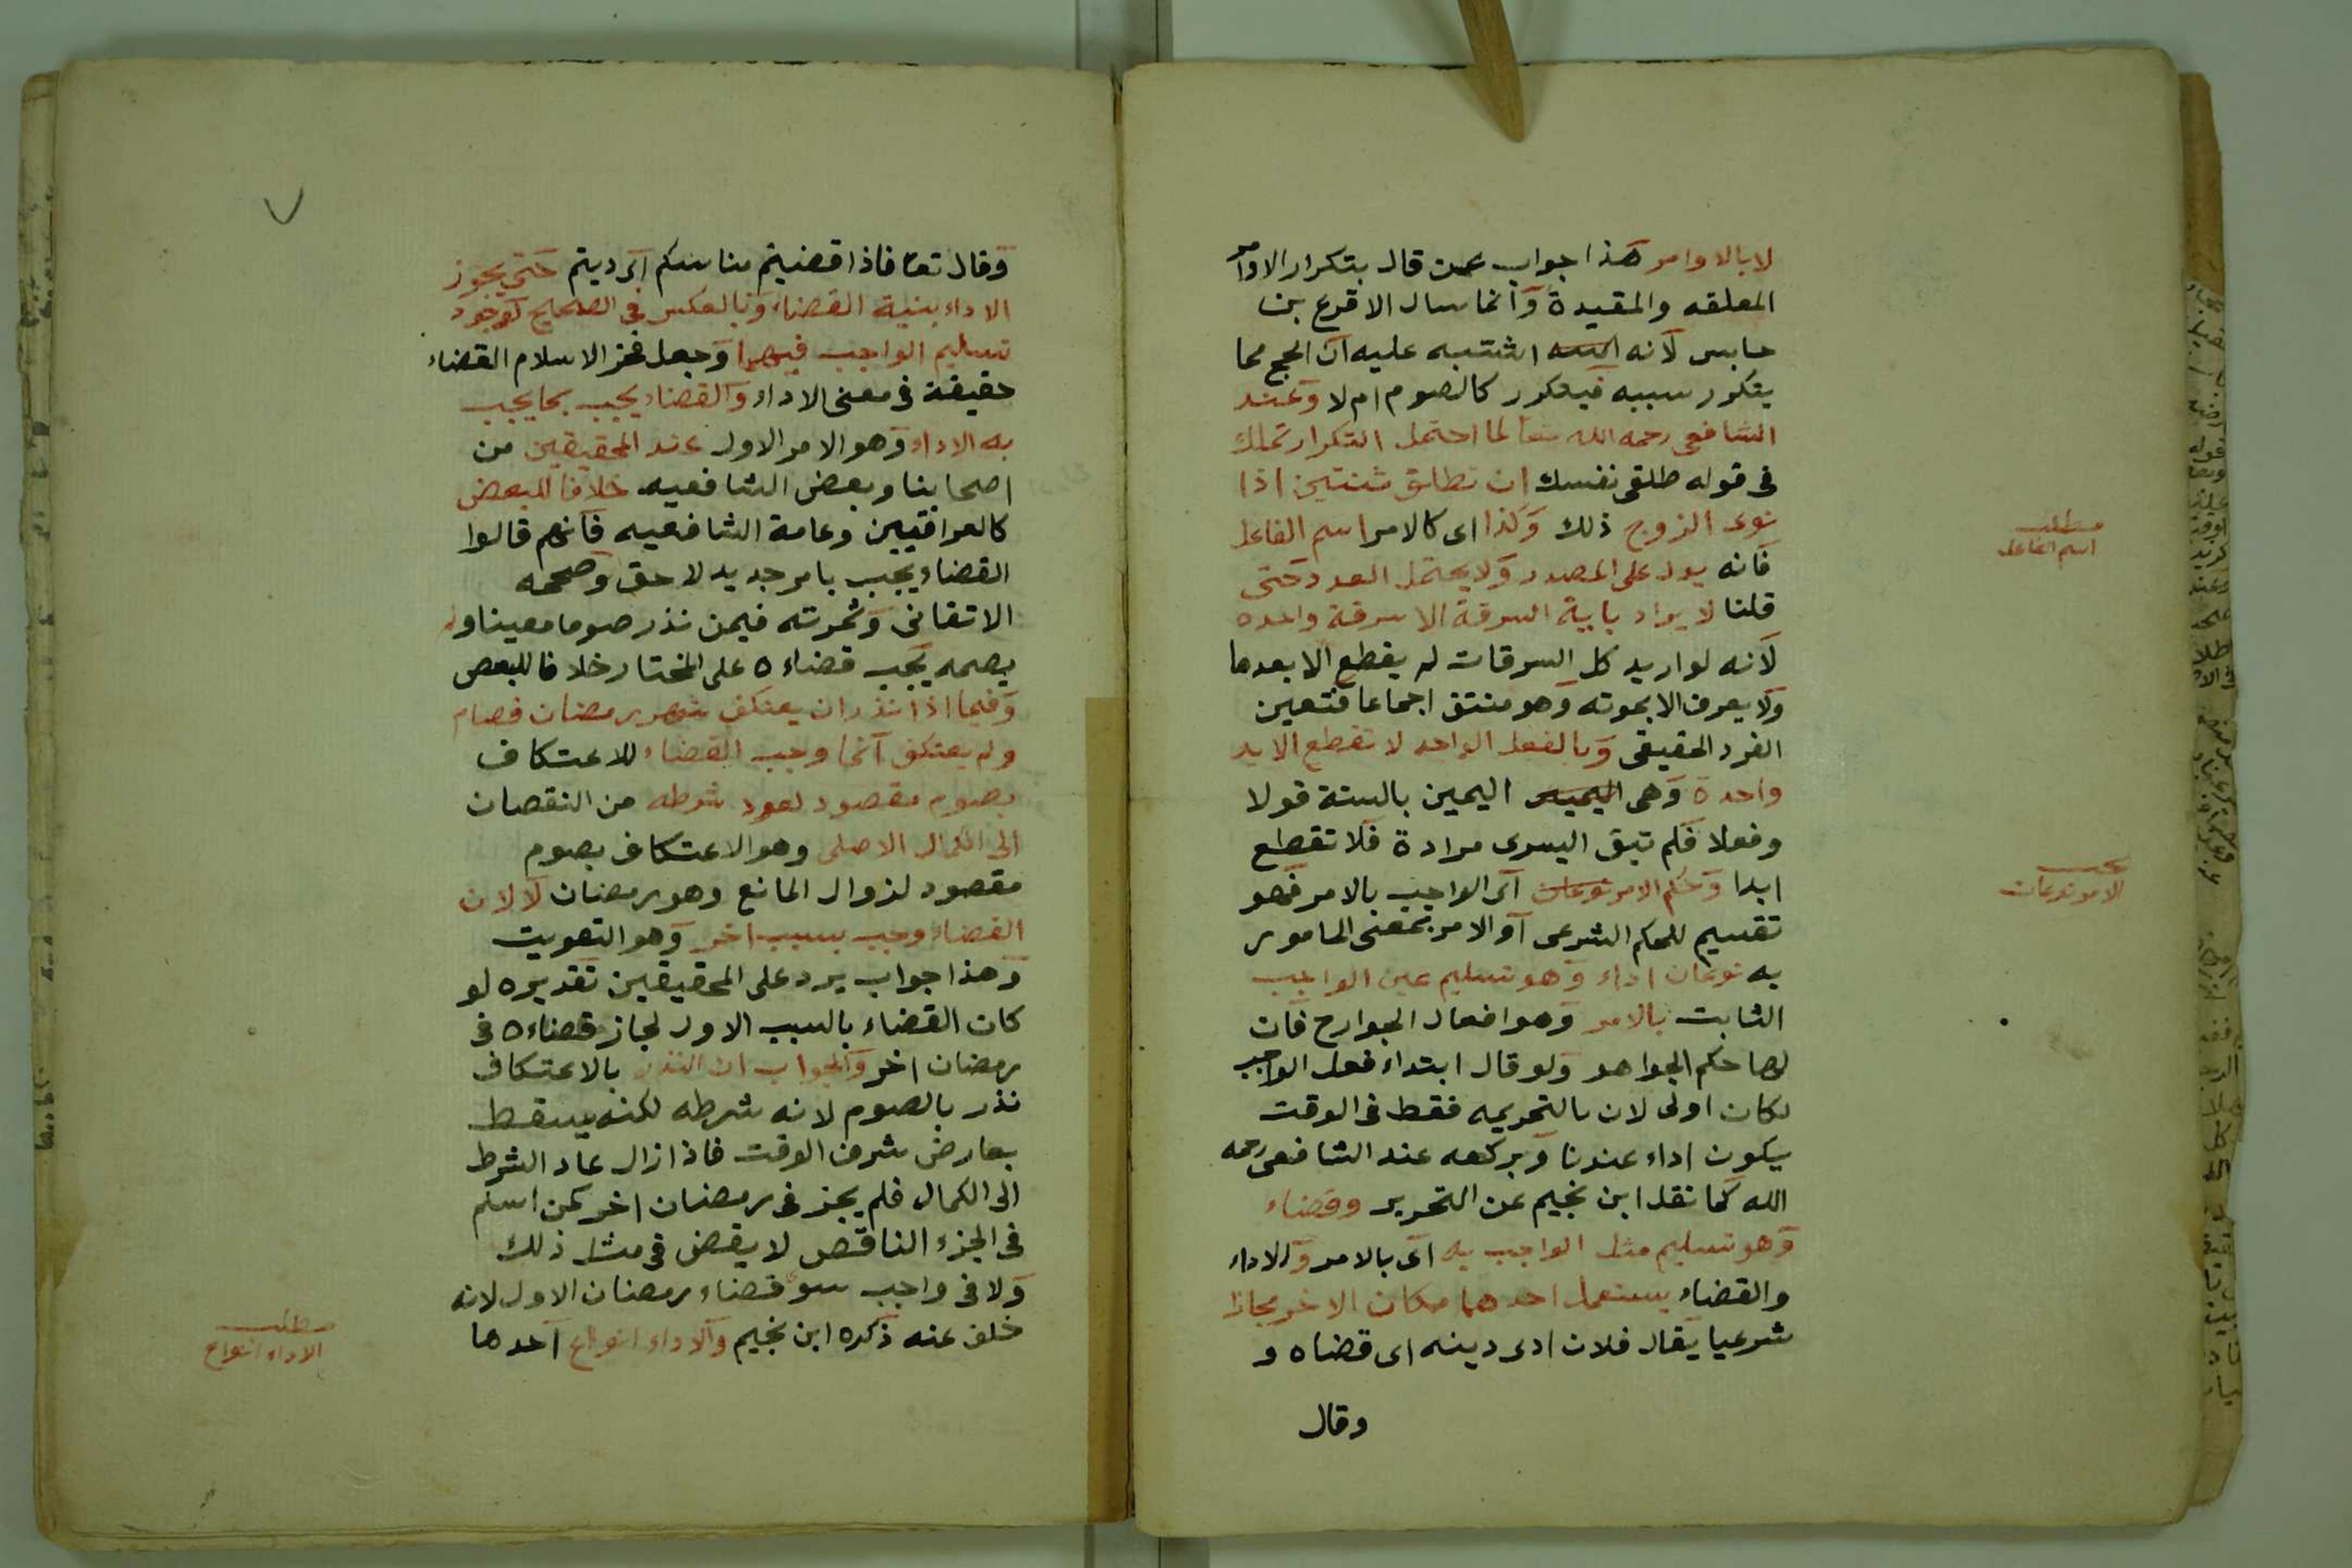 لا بالاوامر هذا جواب عمن قال بتكرار الاوامر
المعلقه والمقيدة وانما سال الاقرع بن
حابس لانه اشتبه عليه ان الحج مما
يتكرر سببه فيتكرر كالصوم ام لا وعند
الشافعى رحمه الله تعا لما احتمل التكرار تملك
فى قوله طلقى نفسك ان تطلق ثنتين اذا
نوى الزوج ذلك وكذا اى كالامر اسم الفاعل
فانه يدل على المصدر ولا يحتمل العدد حتى
قلنا لا يراد باية السرقة الا سرقة واحده
لانه لو اريد كل السرقات لم يقطع الا بعدها
ولا يعرف الا بموته وهو منتق اجماعا فتعين
الفرد الحقيقى وبالفعل الواحد لا تقطع الا يد
واحدة وهى اليمين بالسنة قولا
وفعلا فلم تبق اليسرى مرادة فلا تقطع
ابدا وحكم الامر نوعان اى الواجب بالامر فهو
تقسيم للحكم الشرعى او الامر بمعنى المامور
به نوعان اداء وهو تسليم عين الواجب
الثابت بالامر وهو افعال الجوارح فان
لها حكم الجواهر ولو قال ابتداء فعل الواجب
لكان اولى لان بالتحريمه فقط فى الوقت
يكون اداء عندنا وبركعه عند الشافعى رحمه
الله كما نقل ابن نجيم عن التحرير وقضاء
وهو تسليم مثل الواجب به اى بالامر والاداء
والقضاء يستعمل احدهما مكان الاخر مجازا
شرعيا يقال فلان ادى دينه اى قضاه و
وقال
مطلب
اسم الفاعل
الامر نوعان
وقال تعا فاذا قضيتم مناسككم اى اديتم حتى يجوز
الاداء بنية القضاء وبالعكس فى الصحيح لوجود
تسليم الواجب فيهما وجعل فخر الاسلام القضاء
حقيقة فى معنى الاداء والقضاء يجب بما يجب
به الاداء وهو الامر الاول عند المحققين من
اصحابنا وبعض الشافعيه خلافا للبعض
كالعراقيين وعامة الشافعيه فانهم قالوا
القضاء يجب بامر جديد لاحق وصححه
الاتقانى وثمرته فيمن نذر صوما معينا ولم
يصمه يجب قضاءه على المختار خلافا للبعض
وفيما اذا نذر ان يعتكف شهر رمضان فصام
ولم يعتكف انما وجب القضاء للاعتكاف
بصوم مقصود لعود شرطه من النقصان
الى الكمال الاصلى وهو الاعتكاف بصوم
مقصود لزوال المانع وهو رمضان لا لان
القضاء وجب بسبب اخر وهو التفويت
وهذا جواب يرد على المحققين تقديره لو
كان القضاء بالسبب الاول لجاز قضاءه فى
رمضان اخر والجواب ان النذر بالاعتكاف
نذر بالصوم لانه شرطه لكنه يسقط
بعارض شرف الوقت فاذا زال عاد الشرط
الى الكمال فلم يجز فى رمضان اخر كمن اسلم
فى الجزء الناقص لا يقضى فى مثل ذلك
ولا فى واجب سوى قضاء رمضان الاول لانه
خلف عنه ذكره ابن نجيم والاداء انواع احدها
مطلب
الاداء انواع